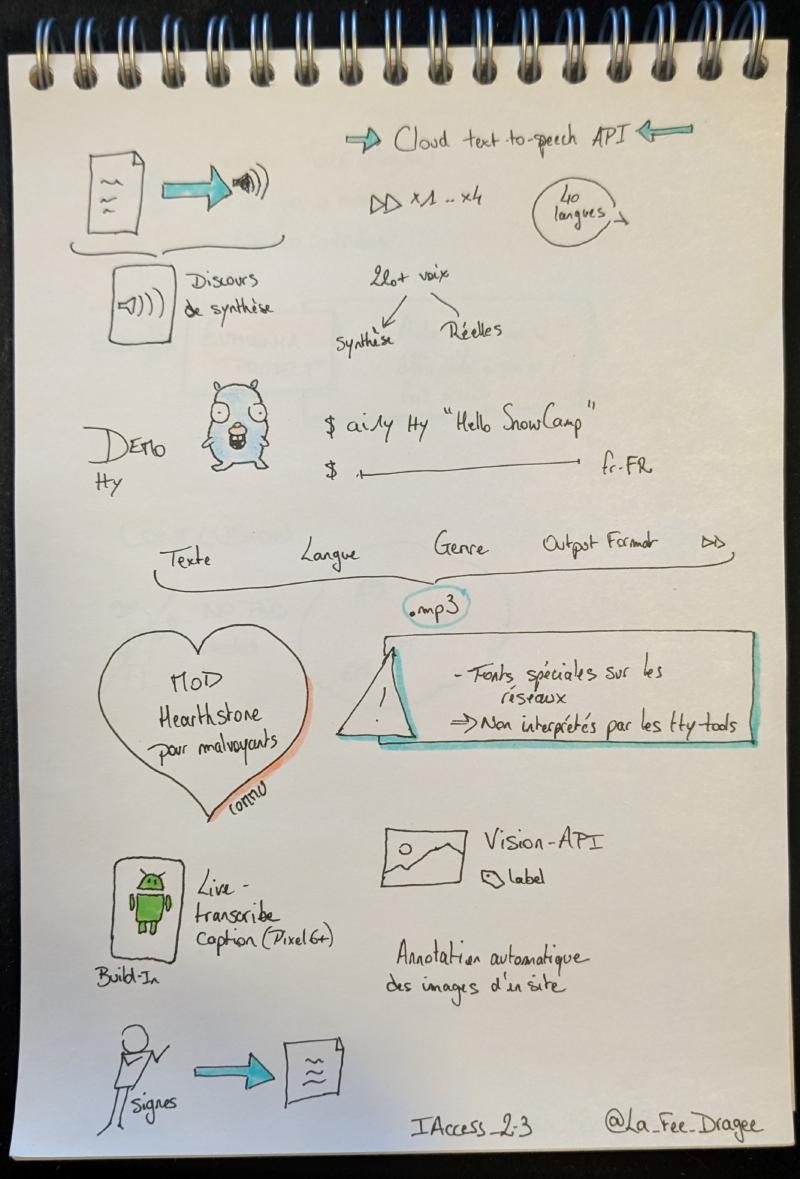 Cloud text-to-speech API
x1 .. x4
40
langues
Discours
de synthèse
220+ voix
Synthèse
Réelles
DEMO
tty
$ a11y tty "Hello SnowCamp"
$ fr-FR
Texte Langue Genre Output Format
.mp3
MOD
Hearthstone
pour malvoyants
commu
- Fonts spéciales sur les
réseaux
=> Non interprétés par les tty-tools
!
Live -
transcribe
caption (Pixel 6+)
Build-In
Vision-API
label
Annotation automatique
des images d'un site
signes
IAccess_2-3
@La_Fee_Dragee